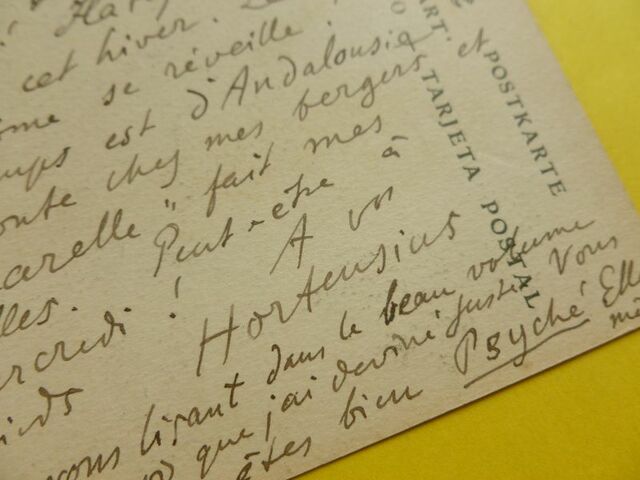 cet hiver.
se réveille !
est d'Andalousie
chez mes bergers et
arelle" fait mes
lles. Peut-être à
ercredi ! A vos
ieds Hortensius
vous lisant dans le beau volume
que j'ai deviné juste. Vous
êtes bien Psyché! Elle
POSTKARTE
TARJETA POSTAL